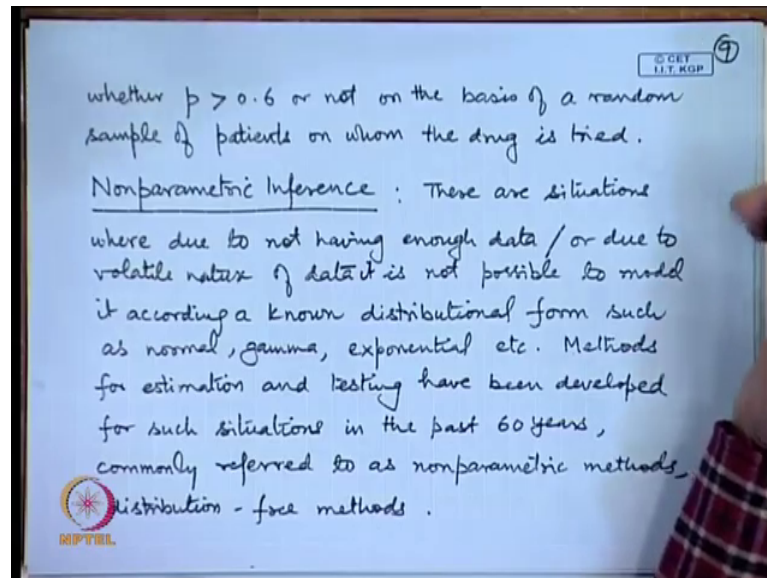 © CET
I.I.T. KGP
9
whether p > 0.6 or not on the basis of a random
sample of patients on whom the drug is tried.
Nonparametric Inference : There are situations
where due to not having enough data / or due to
volatile nature of data it is not possible to model
it according a known distributional form such
as normal, gamma, exponential etc. Methods
for estimation and testing have been developed
for such situations in the past 60 years,
commonly referred to as nonparametric methods,
distribution-free methods.
NPTEL